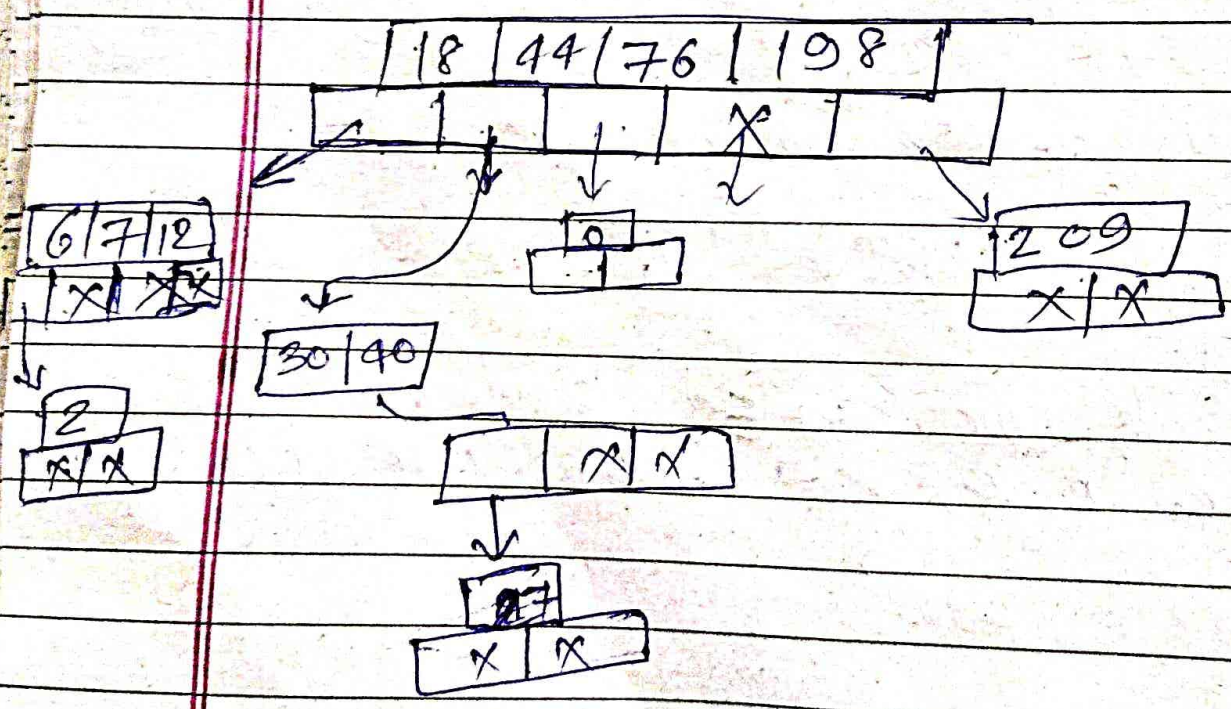 18 | 44 | 76 | 198
X
6 | 7 | 12
X | X | X
0
209
X | X
30 | 40
2
X | X
X | X
27
X | X